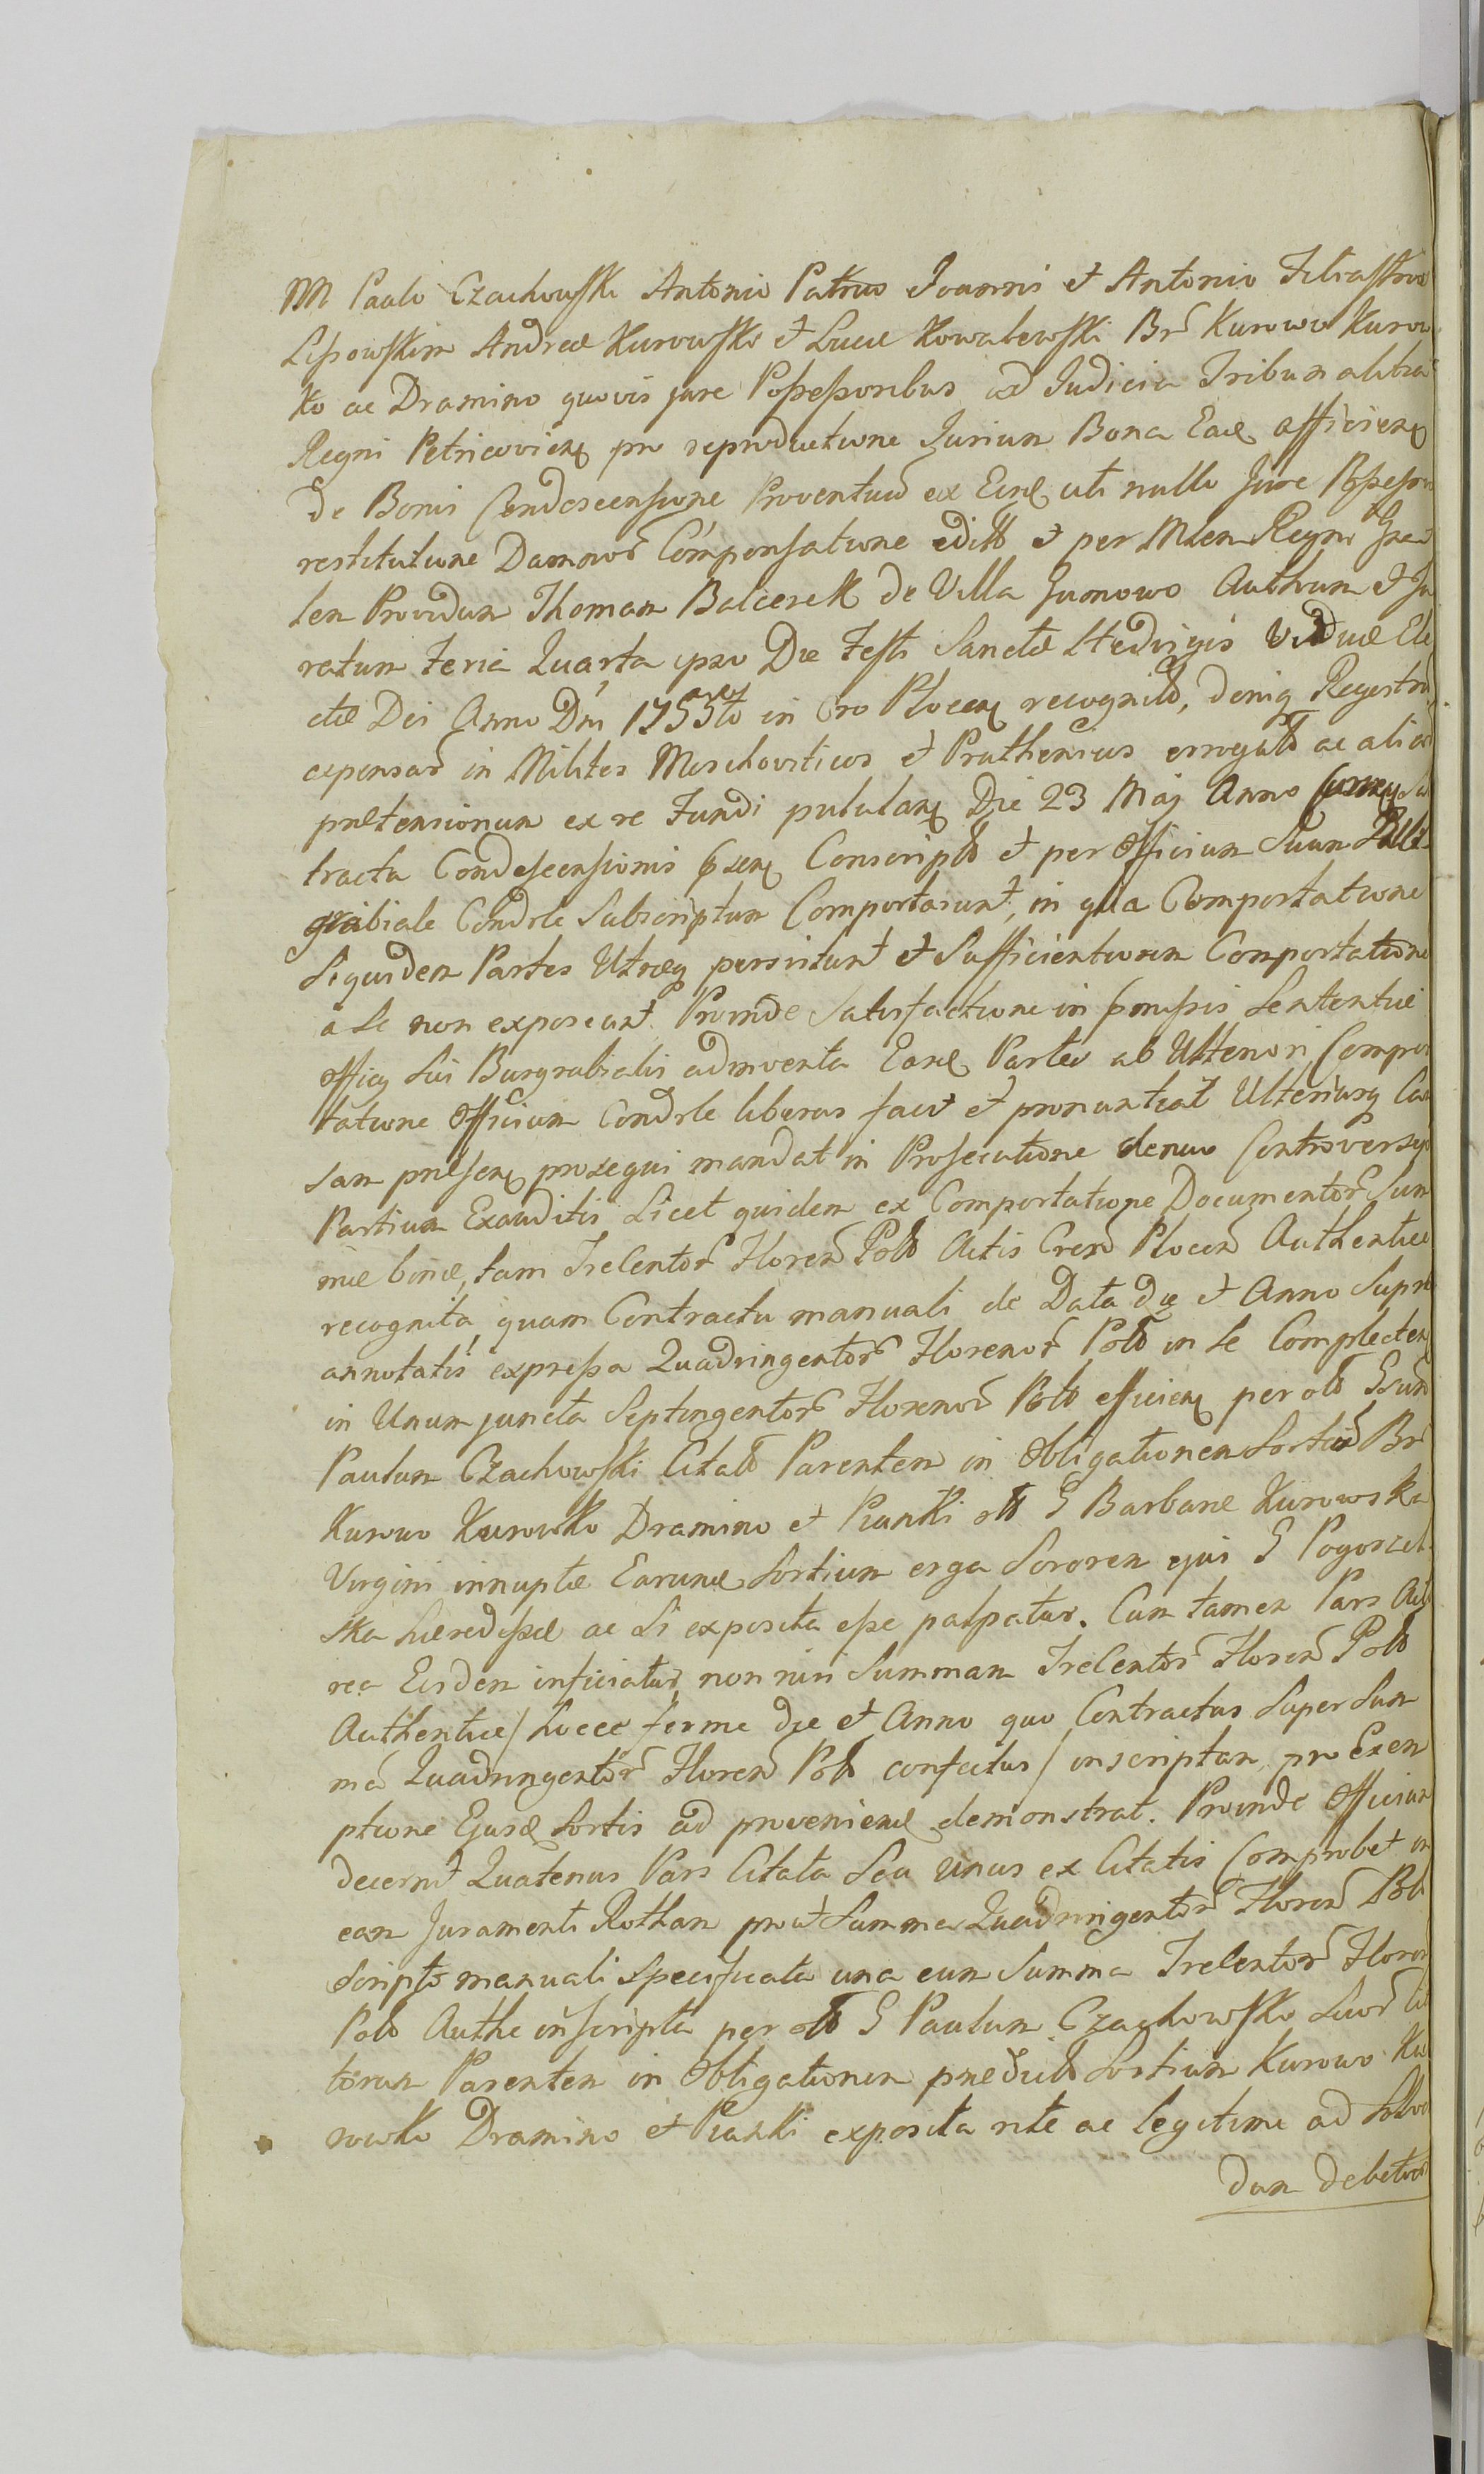 M Paulo Czachowski Antonio Patruo Joanni et Antonio Filiastris
Lipowskim Andreæ Kurowski et Lucæ Kowalewski Br Kurowo Kurow
ko ac Dramino quovis jure Possessoribus ad Judicia Tribunalitia
Regni Petricovien pro reproductione Jurium Bona Ead afficien
de Bonis Condescensione Proventuu ex Eisd uti nullo Jure Possessis
restitutione Damnor Compensatione edit et per Mlem Regni Gna
lem Providum Thomam Balcerek de Villa Gumowo Authum et Ju
ratum Feria Quarta ipso Die Festi Sanctæ Hedvigis Viduæ Ele
ctæ Dei Anno Dni 1753tio in Cro Plocen recognit, deniq Regestru
expensar in Milites Moschoviticos et Pruthenicos errogat ac aliar
prætensionum ex re Fundi pululan Die 23 Maj Anno
tracta Condescensionis Conscript et per Officium Suum
grabiale Condsle Subscriptum Comportarunt, in qua Comportatione
Siquidem Partes Utræq persistunt et Sufficientiorem Comportatione
a Se non exposcunt. Proinde Satisfactione in præmissis Sententiæ
Officij Sui Burgrabialis adinventa Easd Partes ab Ulteriori Compor
tatione Officium Condsle liberas facit et pronuntiat Ulteriusq Cau
sam præsen prosequi mandat in Prosecutione denuo Controversijs
Partium Exauditis Licet quidem ex Comportatione Documentor Sum
mæ binæ, tam Trecentor Floren Pol Actis Cren Plocen Authentice
recognita, quam Contractu manuali de Data Die et Anno Supra
annotatis expressa Quadringentor Florenor Pol in Se Complecten
in Unum juncta Septingentor Florenor Pol efficien per ol Gsum
Paulum Czachowski Citat Parentem in Obligationem Sortiu Br
Kurowo Kurowko Dramino et Pianki ol G Barbaræ Kurowska
Virgini innuptæ Earund Sortium erga Sororem ejus G Pogorzel
ska hæredissæ ac Si exposita esse palpatur. Cum tamen Pars Act
rea Eisdem inficiatur non nisi Summam Trecentor Floren Pol
Authentice / hocce ferme die et Anno quo Contractus Super Sum
ma Quadringentor Floren Pol confectus / inscriptam pro Exem
ptione Ejusd Sortis ad proveniend demonstrat. Proinde Officium
decernit Quatenus Pars Citata Seu Unus ex Citatis Comprobet in
eam Juramenti Rotham prout Summa Quadringentor Floren Pol
Scripto manuali Specificata una cum Summa Trecentor Floren
Pol Authe inscripta per ol G Paulum Czachowski Suor Ci
torum Parentem in Obligationem prædict Sortium Kurowo Ku
rowko Dramino et Pianki exposita rite ac legitime ad Solven
dum debetur